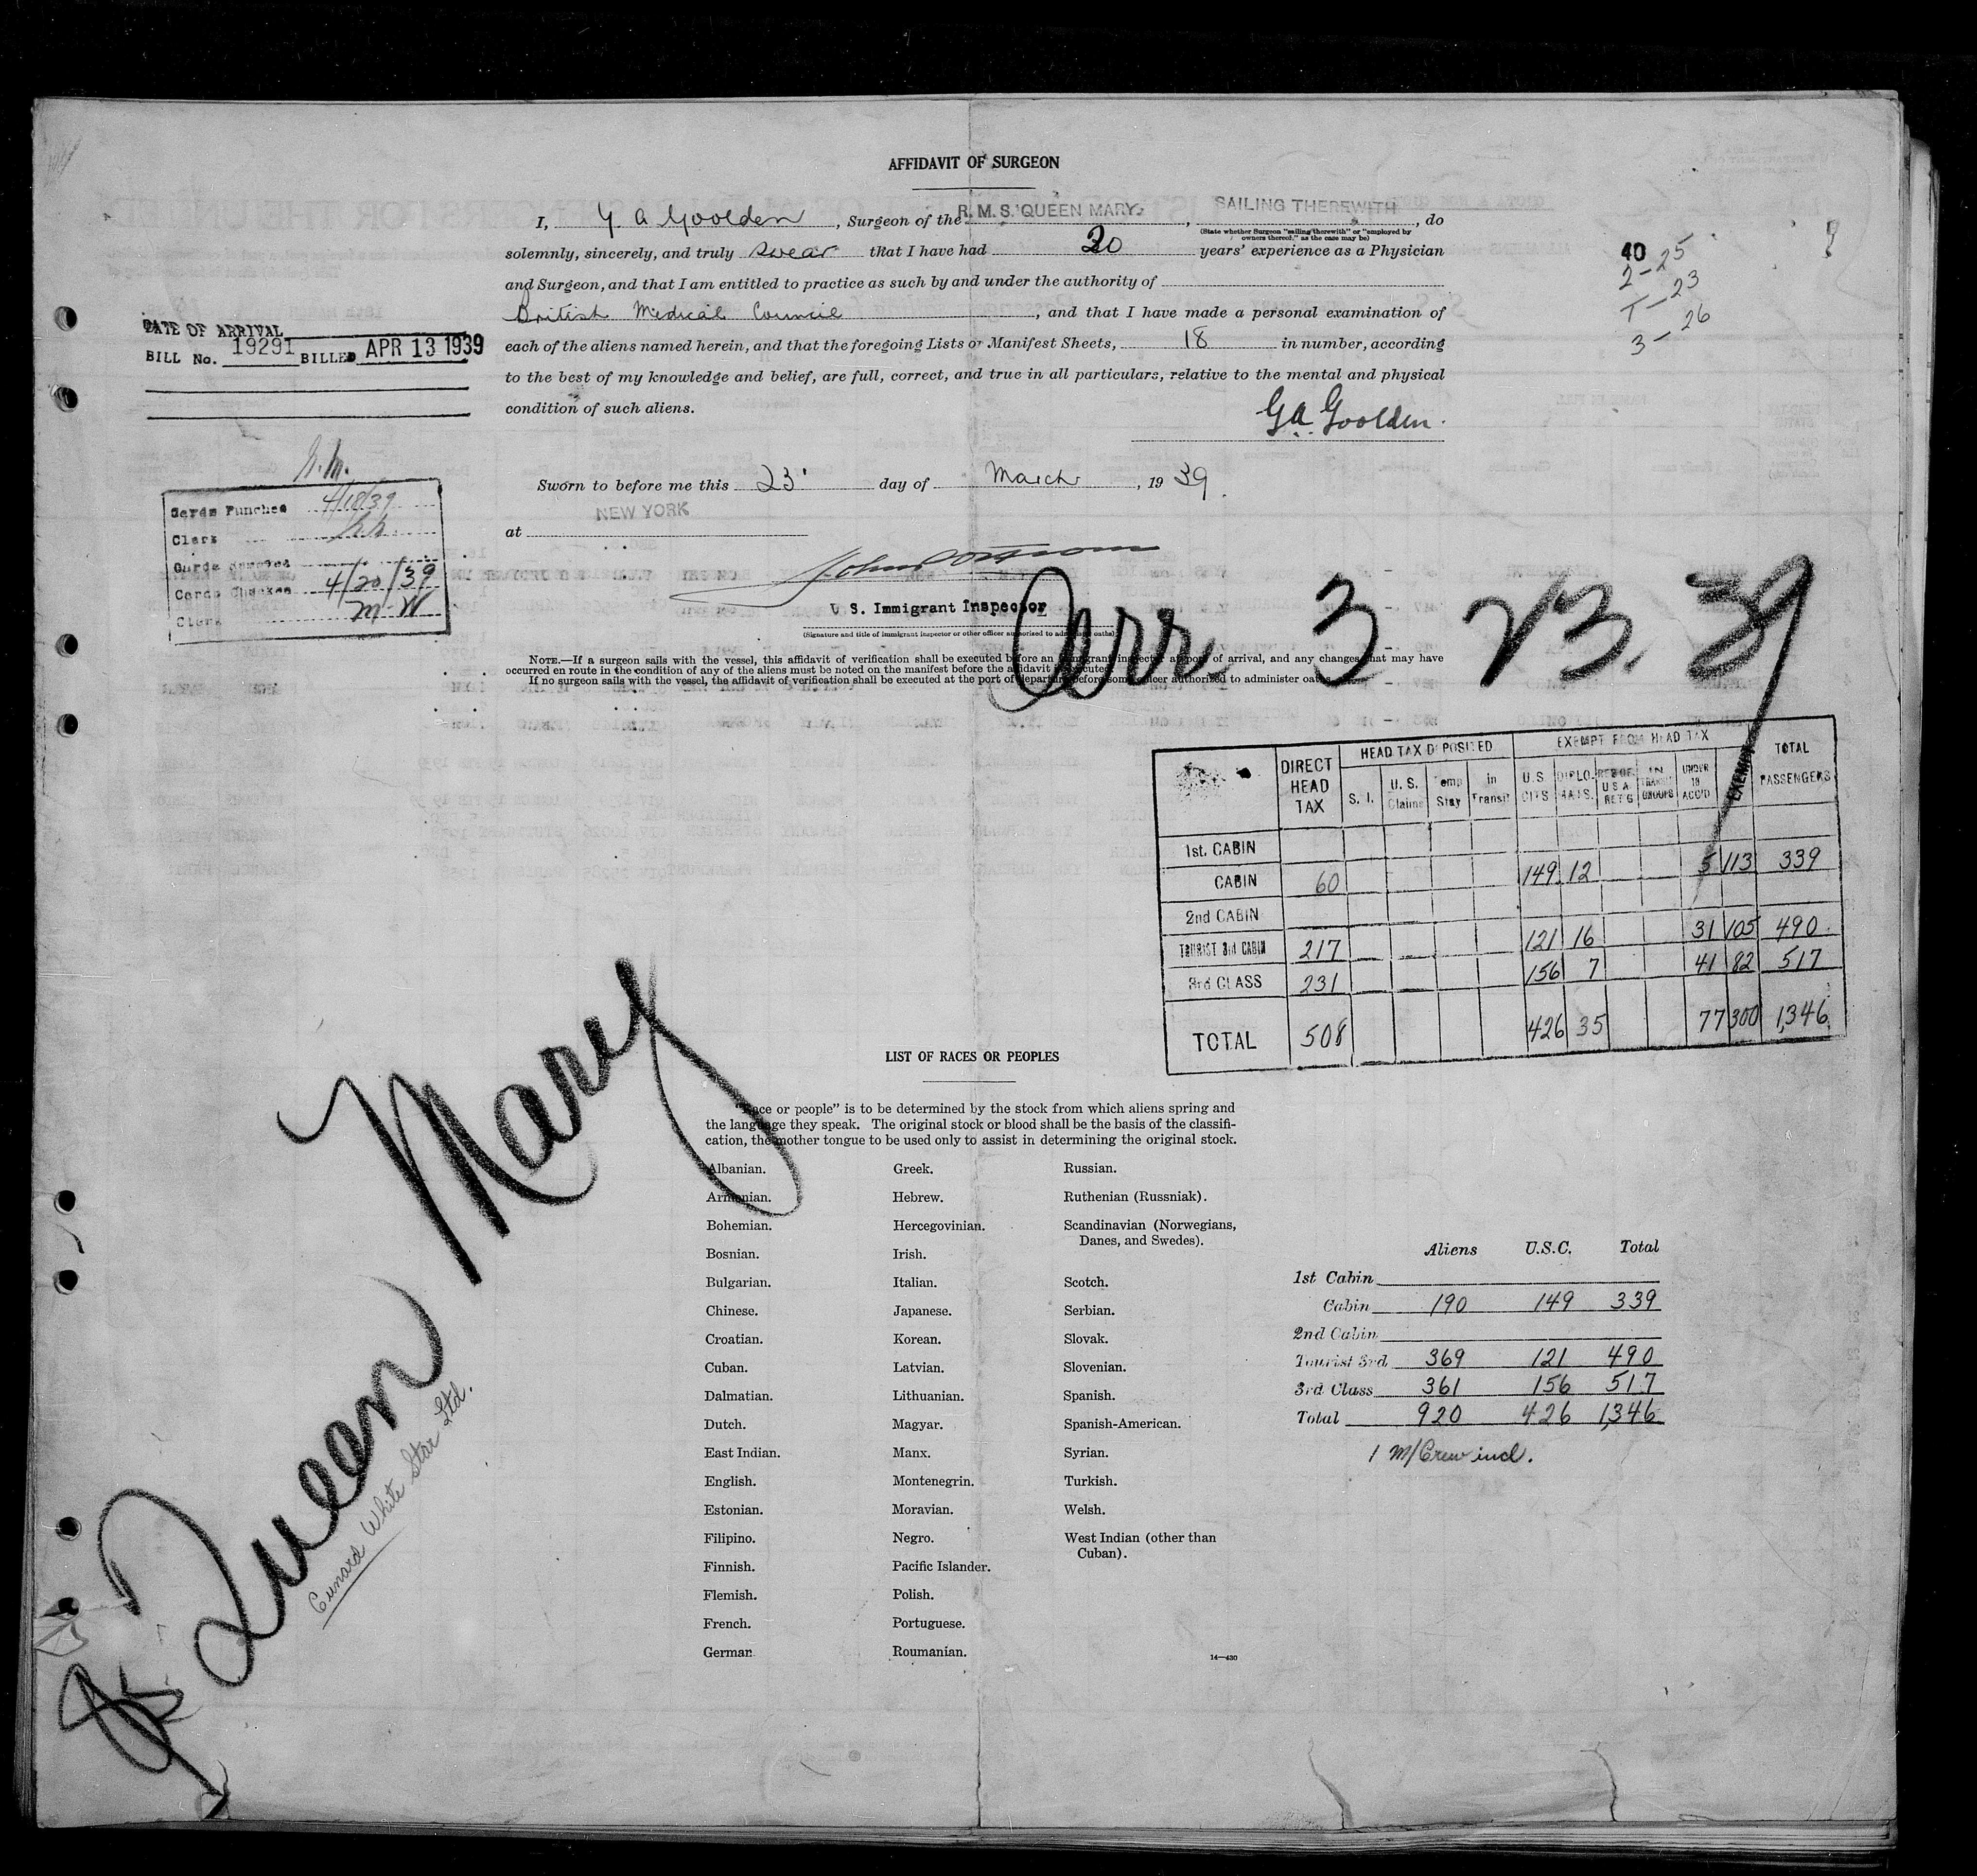 AFFIDAVIT OF SURGEON
I, G A Goolden, Surgeon of the R. M. S. "QUEEN MARY", SAILING THEREWITH, do
(State whether Surgeon "sailing therewith" or "employed by
owners thereof," as the case may be)
solemnly, sincerely, and truly swear that I have had 30 years' experience as a Physician
and Surgeon, and that I am entitled to practice as such by and under the authority of
British Medical Council, and that I have made a personal examination of
each of the aliens named herein, and that the foregoing Lists or Manifest Sheets, 18 in number, according
to the best of my knowledge and belief, are full, correct, and true in all particulars, relative to the mental and physical
condition of such aliens.
GA Goolden.
40
2-25
T-23
3-26
DATE OF ARRIVAL
BILL No. 19291 BILLED APR 13 1939
Cards Punched 4/18/39
Clerk
Cards
Cards Checked 4/20/39
Clerk M W
Sworn to before me this 23 day of March, 1939.
at NEW YORK
U S. Immigrant Inspector
(Signature and title of immigrant inspector or other officer authorized to administer oaths)
Arr. 3 23. 39
NOTE.—If a surgeon sails with the vessel, this affidavit of verification shall be executed before an immigrant inspector at port of arrival, and any changes that may have
occurred en route in the condition of any of the aliens must be noted on the manifest before the affidavit is executed.
If no surgeon sails with the vessel, the affidavit of verification shall be executed at the port of departure before some officer authorized to administer oaths.
DIRECT HEAD TAX HEAD TAX DEPOSITED EXEMPT FROM HEAD TAX TOTAL PASSENGERS
S. I. U. S. Claims Temp Stay In Transit U.S. CITS DIPLO-MATS. RES OF U S A RET'G IN TRANSIT GROUPS UNDER 16 ACC'D EXEMPT
1st. CABIN
CABIN 60 149 12 5 113 339
2nd CABIN
TOURIST 3rd CABIN 217 121 16 31 105 490
3rd CLASS 231 156 7 41 82 517
TOTAL 508 426 35 77 300 1,346
SS Queen Mary
Cunard White Star Ltd.
LIST OF RACES OR PEOPLES
"Race or people" is to be determined by the stock from which aliens spring and
the language they speak. The original stock or blood shall be the basis of the classifi-
cation, the mother tongue to be used only to assist in determining the original stock.
Albanian.
Armenian.
Bohemian.
Bosnian.
Bulgarian.
Chinese.
Croatian.
Cuban.
Dalmatian.
Dutch.
East Indian.
English.
Estonian.
Filipino.
Finnish.
Flemish.
French.
German
Greek.
Hebrew.
Hercegovinian.
Irish.
Italian.
Japanese.
Korean.
Latvian.
Lithuanian.
Magyar.
Manx.
Montenegrin.
Moravian.
Negro.
Pacific Islander.
Polish.
Portuguese.
Roumanian.
Russian.
Ruthenian (Russniak).
Scandinavian (Norwegians,
Danes, and Swedes).
Scotch.
Serbian.
Slovak.
Slovenian.
Spanish.
Spanish-American.
Syrian.
Turkish.
Welsh.
West Indian (other than
Cuban).
14—430
Aliens U.S.C. Total
1st Cabin
Cabin 190 149 339
2nd Cabin
Tourist 3rd 369 121 490
3rd Class 361 156 517
Total 920 426 1,346
1 M/Crew incl.